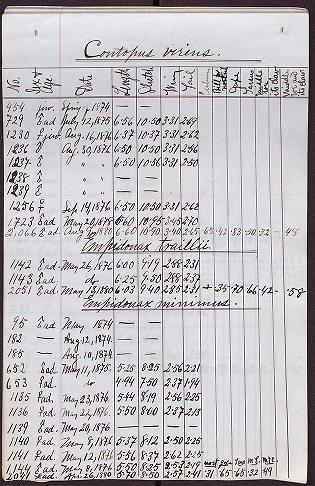 Contopus virens.
No. Sex & Age Date Length Width Wing Tail
454 juv. Spring, 1874 — —
729 ad July 12, 1875 6·56 10·50 3·31 2·69
1230 juv. Aug. 16, 1876 6·37 10·37 3·31 2·62
1236 Aug. 30, 1876 6·50 10·50 3·31 2·56
1237 " " 6·50 10·56 3·31 2·50
1238 " " — —
1239 " " — —
1256 Sep. 19, 1876 6·50 10·50 3·31 2·62
1723 ad. May 20, 1878 6·60 10·95 3·45 2·70
2,066 ad. 1880 6·60 10·90 3·40 2·65 ·65 ·42 ·83 ·50 ·32 — ·48
Empidonax traillii
1142 ad. May 26, 1876 6·00 9·19 2·88 2·31
1143 ad. do 6·25 9·50 2·88 2·37
2051 ad. May 15, 1880 6·03 9·40 2·85 2·31 + ·35 ·70 ·66 ·42 — ·58
Empidonax minimus.
95 ad May 1874 — —
182 — Aug. 12, 1874 — —
185 — Aug. 10, 1874 — —
652 ad. May 11, 1875 5·25 8·25 2·56 2·21
653 ad. do 4·94 7·50 2·37 1·94
1135 ad. May 23, 1876 5·44 8·19 2·56 2·25
1136 ad. May 22, 1876 5·50 8·00 2·37 2·13
1139 ad. May 20, 1876 — —
1140 ad. May 8, 1876 5·37 8·12 2·50 2·25
1141 ad. May 12, 1876 5·56 8·37 2·62 2·25
1144 ad. May 8, 1876 5·50 8·25 2·53 2·19
2047 ad. Apr. 26, 1880 5·70 8·50 2·57 2·41 ·31 ·65 ·68 ·32 ·49